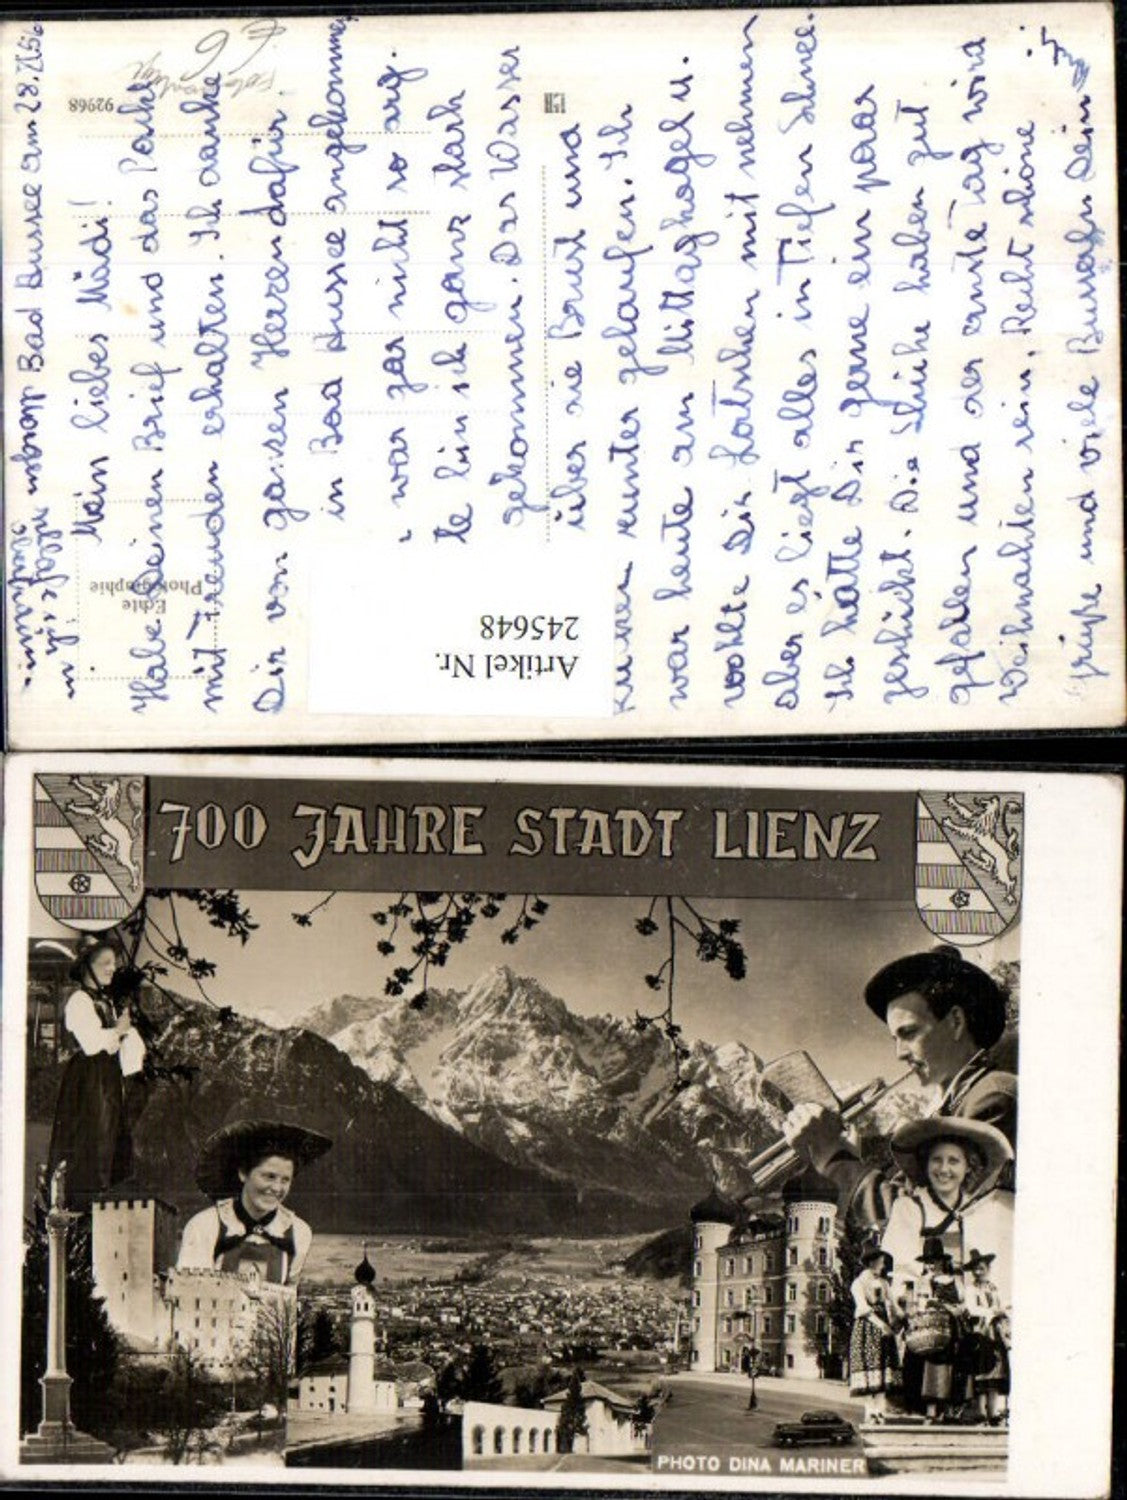 Bad Aussee am 28.XI.56
Mein liebes Mädi!
Habe Deinen Brief und das Packl
mit Freuden erhalten. Ich danke
Dir von ganzen Herzen dafür.
in Bad Aussee angekommen
war gar nicht so arg.
te bin ich ganz stark
gekommen. Das Wasser
über die Brust und
runter gelaufen. Ich
war heute am Mittagkogel u.
wollte Dir Latschen mit nehmen
aber es liegt alles in Tiefen Schnee.
Ich hätte Dir gerne ein paar
geschickt. Die Schuhe haben gut
gefallen und der ernste Tag wird
Weihnachten sein. Recht schöne
Grüße und viele Bussaln Dein
92968
Echte
Photographie
Artikel Nr.
245648
700 JAHRE STADT LIENZ
PHOTO DINA MARINER